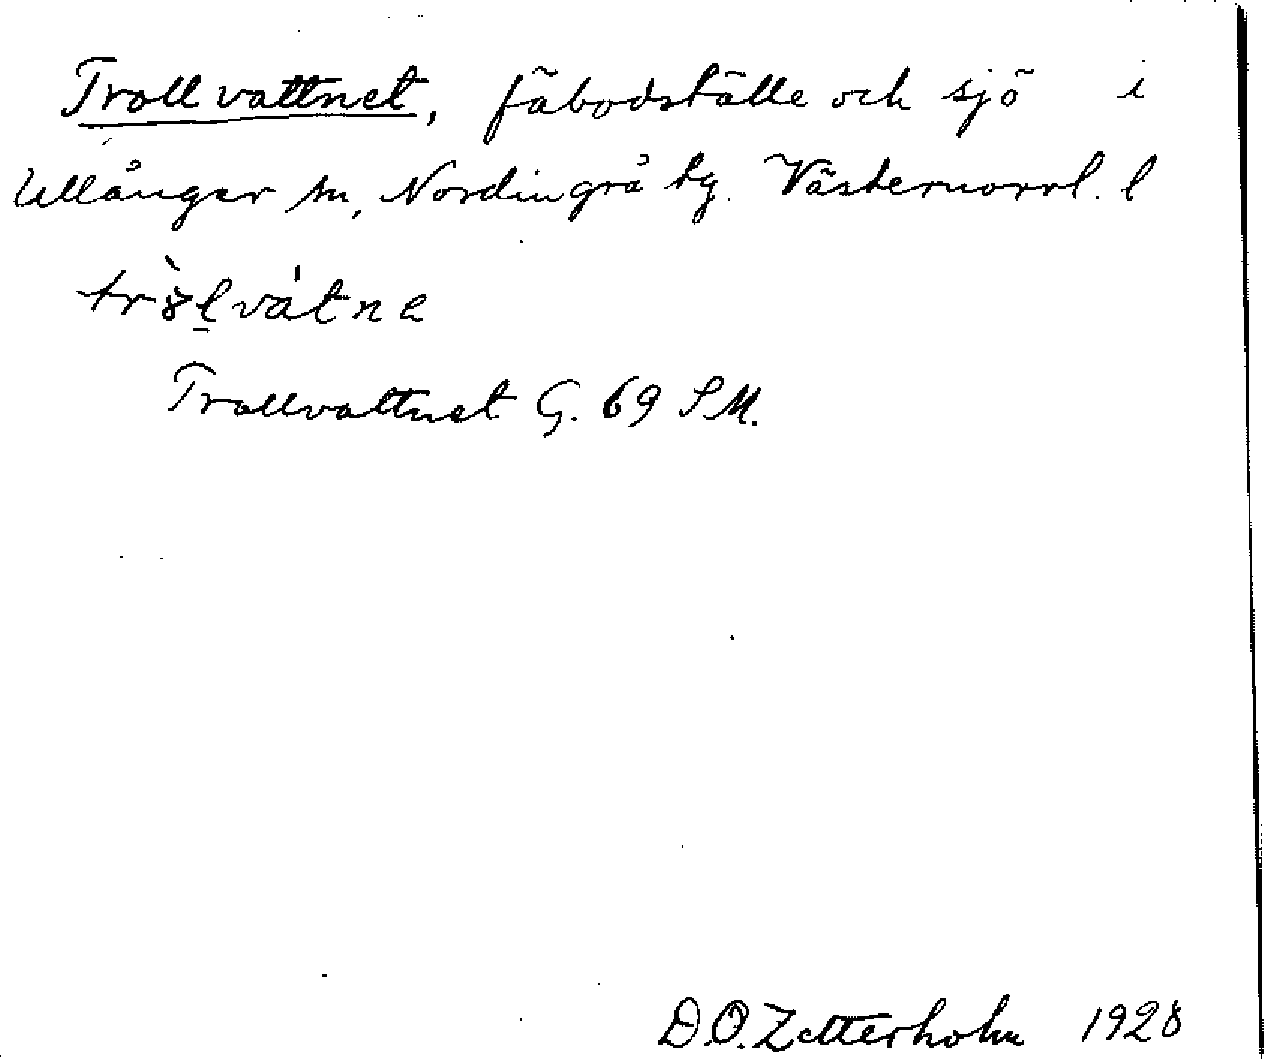 Trollvattnet, fäbodställe och sjö i
Ullånger sn, Nordingrå tg. Västernorrl. l
Trollvattnet G. 69 SM.
D.O. Zetterholm 1928